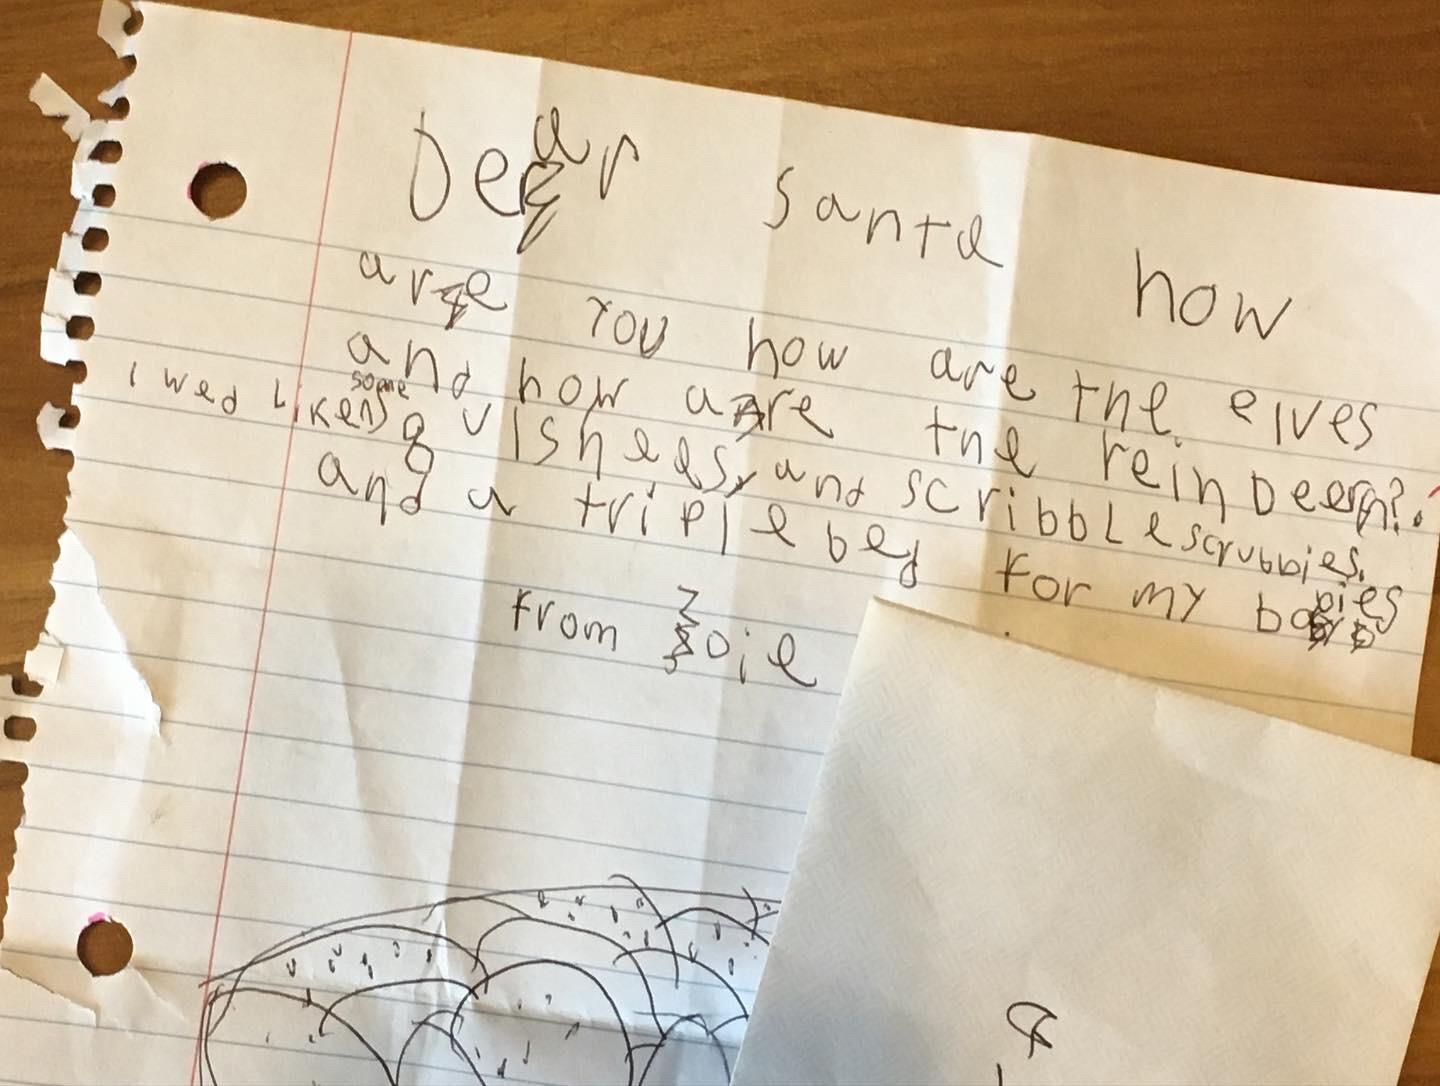 Dear Santa how
are you how are the elves
and how are the reindeer?.
I wed Like some
and scribblescrubbies.
and a triple bed for my babies
from Zoie